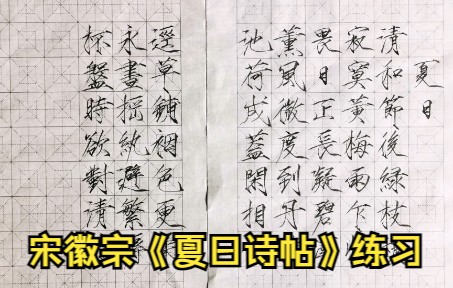 夏日
清和節後綠枝
寂寞黃梅雨乍
畏日正長凝碧
薰風微度到丹
池荷成蓋閑相
逕草鋪裀色更
永晝摇紈避繁
杯盤時欲對清
宋徽宗《夏日诗帖》练习